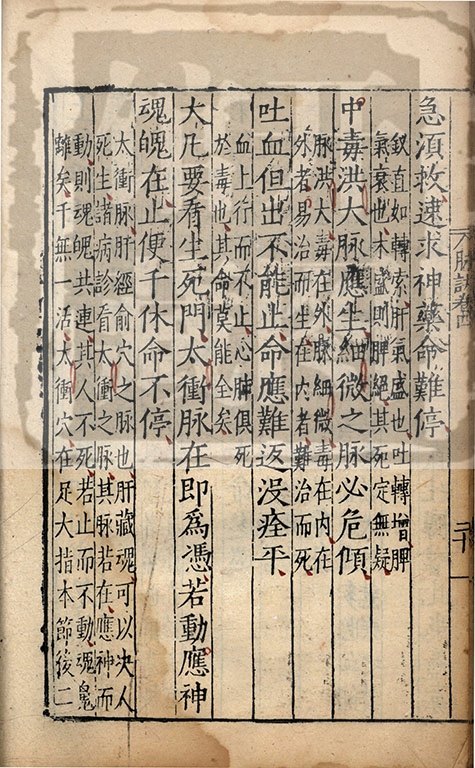 急須救速求神藥命難停
釵直如轉索肝氣盛也吐轉增脾
氣衰也木盛則脾絕其死定無疑
中毒洪大脉應生細微之脉必危傾
脉洪大毒在外脉細微毒在内在
外者易治而生在内者難治而死
吐血但出不能止命應難返沒痊平
血上行而不止心肺俱死
於毒也其命莫能全矣
大凡要看生死門太衝脉在即爲憑若動應神
魂魄在止便千休命不停
太衝脉肝經俞穴之脉也肝藏魂可以决人
死生諸病診看太衝之脉其脉若在應神而
動則魂魄共連其人不死若止而不動魂
雖矣千無一活太衝穴在足大指本節後二